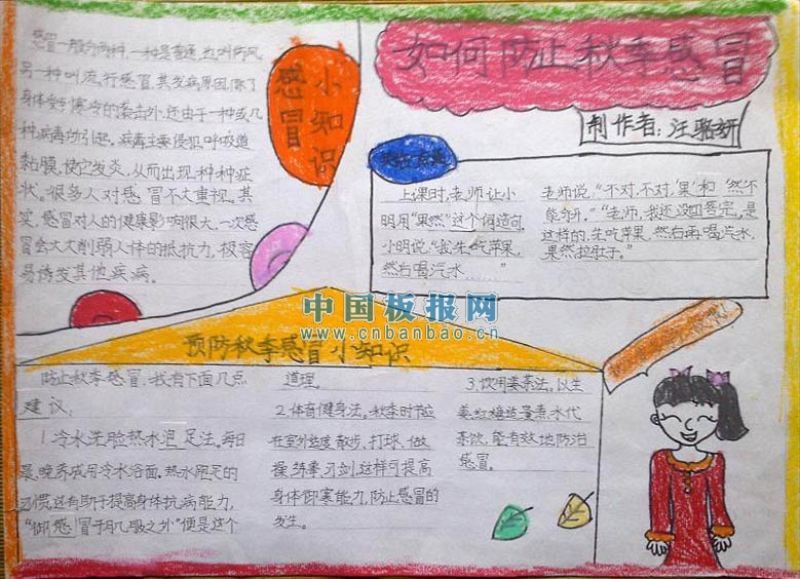 如何防止秋季感冒
制作者:汪骆妍
感冒小知识
感冒一般分两种,一种是普通,也叫伤风,
另一种叫流行感冒,其发病原因,除了
身体受到寒冷的袭击外,还由于一种或几
种病毒的引起。病毒主要侵犯呼吸道
黏膜,使它发炎,从而出现种种症
状。很多人对感冒不大重视。其
实,感冒对人的健康影响很大,一次感
冒会大大削弱人体的抵抗力,极容
易诱发其他疾病。
上课时,老师让小
明用“果然”这个词造句,
小明说:“我先吃苹果,
然后喝汽水……”
老师说,“不对,不对,‘果’和‘然’不
能分开。”“老师,我还没回答完,是
这样的,先吃苹果,然后再喝汽水,
果然拉肚子。”
中国板报网
www.cnbanbao.cn
预防秋季感冒小知识
防止秋季感冒,我有下面几点
建议:
1.冷水洗脸热水泡足法。每日
晨、晚养成用冷水浴面,热水泡足的
习惯,这有助于提高身体抗病能力,
“御感冒于肌肤之外”便是这个
道理。
2.体育健身法。秋季时节
在室外散步、打球、做
操、练拳、刀剑,这样可提高
身体御寒能力,防止感冒的
发生。
3.饮用姜茶法。以生
姜红糖适量煮水代
茶饮,能有效地防治
感冒。